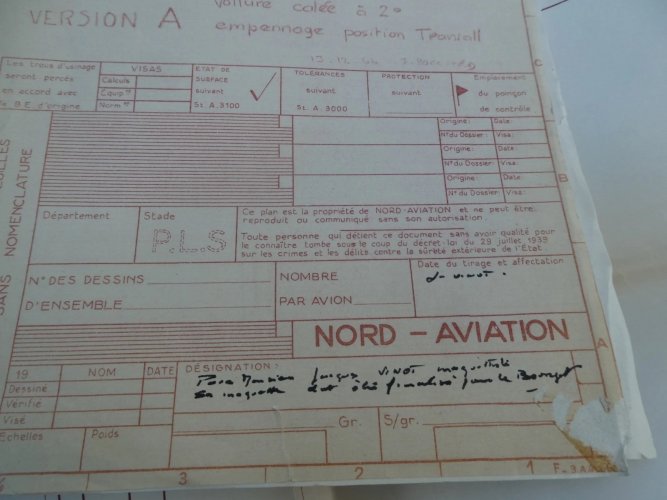 voilure calée à 2°
VERSION A empennage position Transall
Les trous d'usinage
seront percés
en accord avec
B.E. d'origine
VISAS
Calculs
Equip.nt
Norm.on
ETAT DE
SURFACE
suivant
St. A. 3100
TOLÉRANCES
suivant
St. A. 3000
PROTECTION
suivant
Emplacement
du poinçon
de contrôle
C
Origine: Date:
N° du Dossier: Visa:
Origine: Date:
N° du Dossier: Visa:
Origine: Date:
N° du Dossier: Visa:
B
SANS NOMENCLATURE
Département
Stade
P.L.S
Ce plan est la propriété de NORD-AVIATION et ne peut être
reproduit ou communiqué sans son autorisation.
Toute personne qui détient ce document sans avoir qualité pour
le connaître tombe sous le coup du décret-loi du 29 juillet 1939
sur les crimes et les délits contre la sûreté extérieure de l'Etat.
N° DES DESSINS
D'ENSEMBLE
NOMBRE
PAR AVION
Date du tirage et affectation
J. VINOT.
NORD - AVIATION
A
19 NOM DATE
Dessiné
Vérifié
Visé
Echelles
Poids
DÉSIGNATION:
Pour Monsieur Jacques VINOT maquettiste
sa maquette doit être finalisée pour le Bourget
Gr. S/gr.
3 2 1